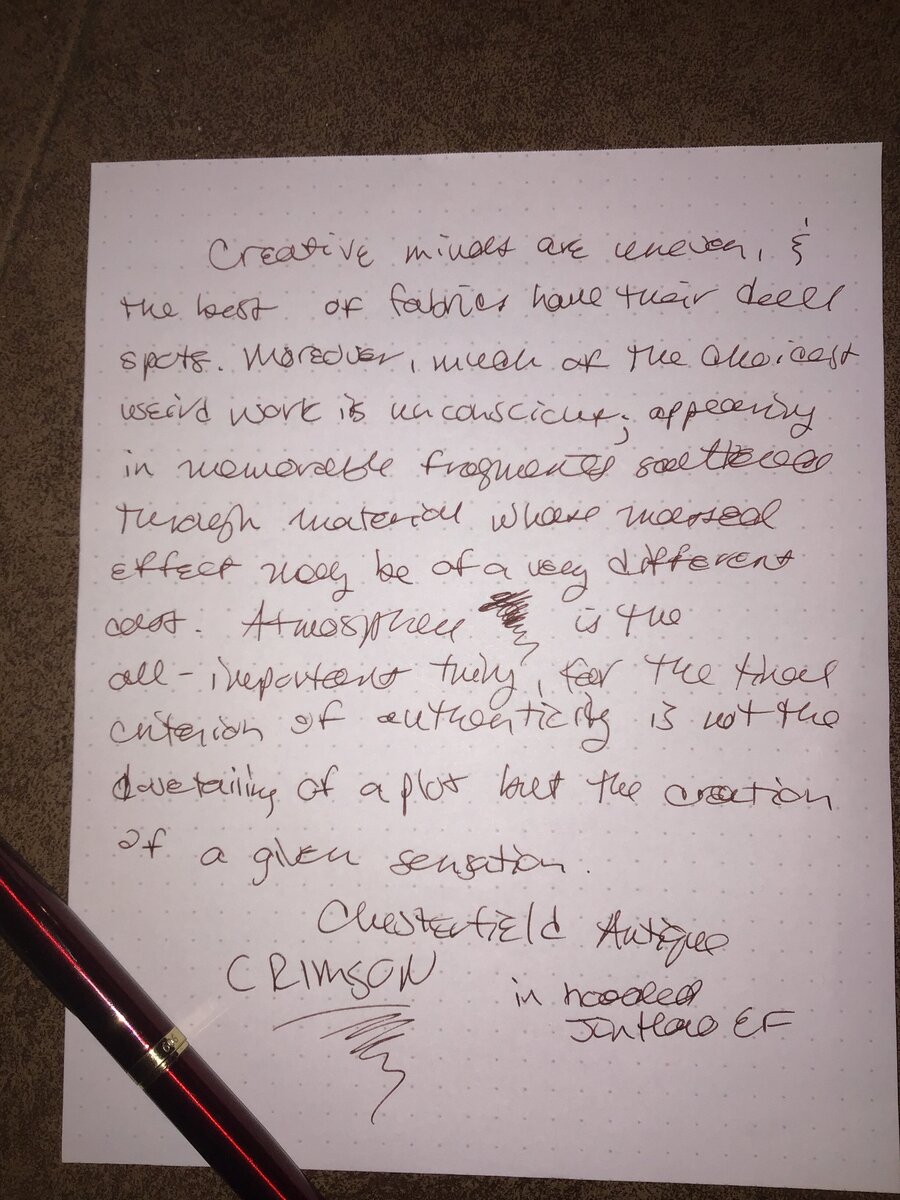 Creative minds are uneven, &
the best of fabrics have their dull
spots. Moreover, much of the choicest
weird work is unconscious; appearing
in memorable fragments scattered
through material whose massed
effect may be of a very different
cast. Atmosphere is the
all-important thing, for the final
criterion of authenticity is not the
dovetailing of a plot but the creation
of a given sensation.
Chesterfield Antique
CRIMSON
in hooded
Jinhao EF